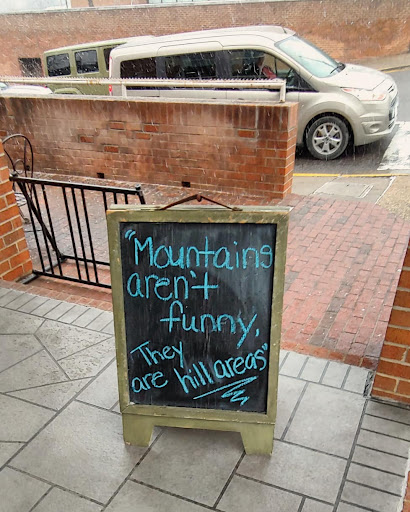 "Mountains
aren't
funny,
They
are hill areas"